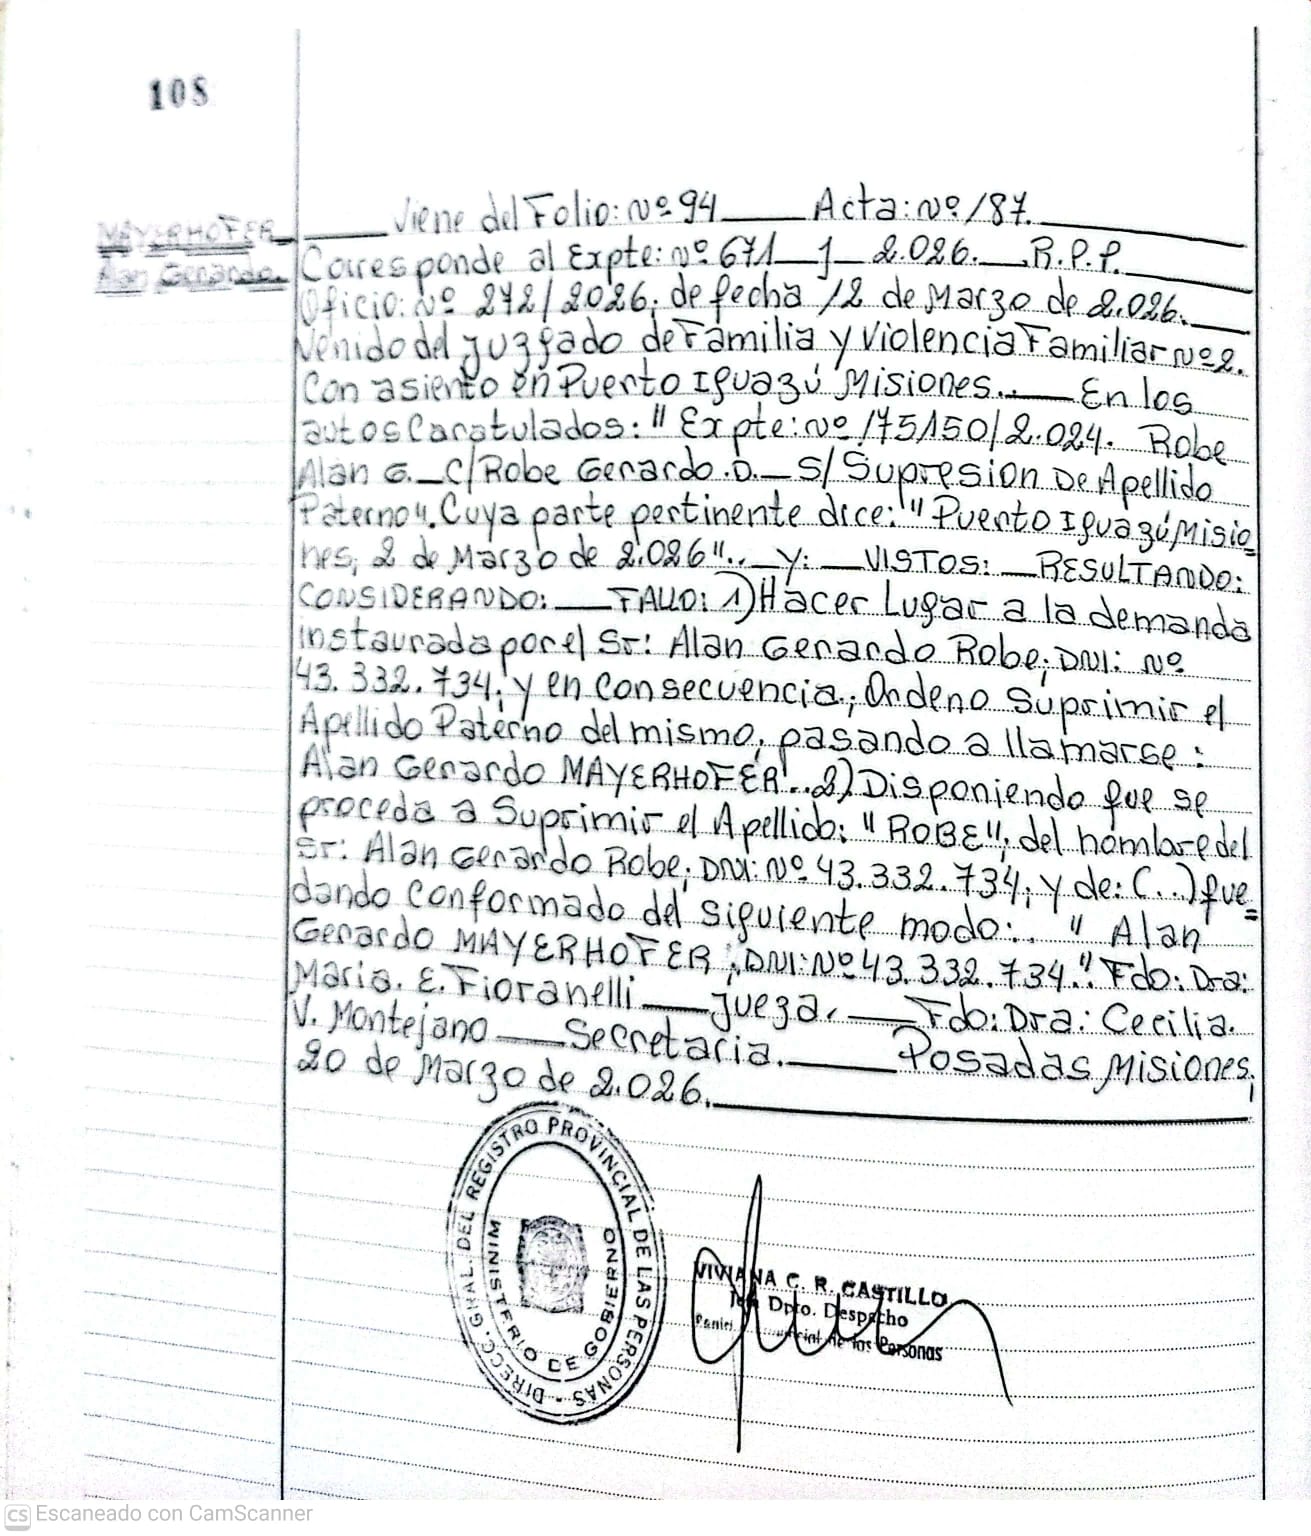 108
MAYERHOFER
Alan Gerardo.
Viene del Folio: Nº 94 ___ Acta: Nº 187.
Corresponde al Expte: Nº 671 _ J _ 2.026. _ R.P.P.
Oficio: Nº 272/2026, de fecha 12 de Marzo de 2.026.
Venido del Juzgado de Familia y Violencia Familiar Nº 2.
Con asiento en Puerto Iguazú Misiones. ___ En los
autos Caratulados: "Expte: Nº 175150/2.024. Robe
Alan G. _ C/ Robe Gerardo. D. _ S/ Supresion De Apellido
Paterno". Cuya parte pertinente dice: "Puerto Iguazú Misio=
nes, 2 de Marzo de 2.026". _ Y: _ VISTOS: _ RESULTANDO:
CONSIDERANDO: ___ FALLO: 1) Hacer Lugar a la demanda
instaurada por el Sr: Alan Gerardo Robe, DNI: Nº
43.332.734, y en Consecuencia, Ordeno Suprimir el
Apellido Paterno del mismo, pasando a llamarse:
Alan Gerardo MAYERHOFER. 2) Disponiendo que se
proceda a Suprimir el Apellido: "ROBE", del nombre del
Sr: Alan Gerardo Robe, DNI: Nº 43.332.734, y de: (..) que=
dando conformado del siguiente modo: " Alan
Gerardo MAYERHOFER, DNI: Nº 43.332.734." Fdo: Dra:
Maria. E. Fioranelli ___ Jueza. ___ Fdo: Dra: Cecilia.
V. Montejano ___ Secretaria. ___ Posadas Misiones,
20 de Marzo de 2.026.
DIRECC. GRAL. DEL REGISTRO PROVINCIAL DE LAS PERSONAS -
MINISTERIO DE GOBIERNO
VIVIANA C. R. CASTILLO
Dpto. Despacho
de las Personas
CS Escaneado con CamScanner